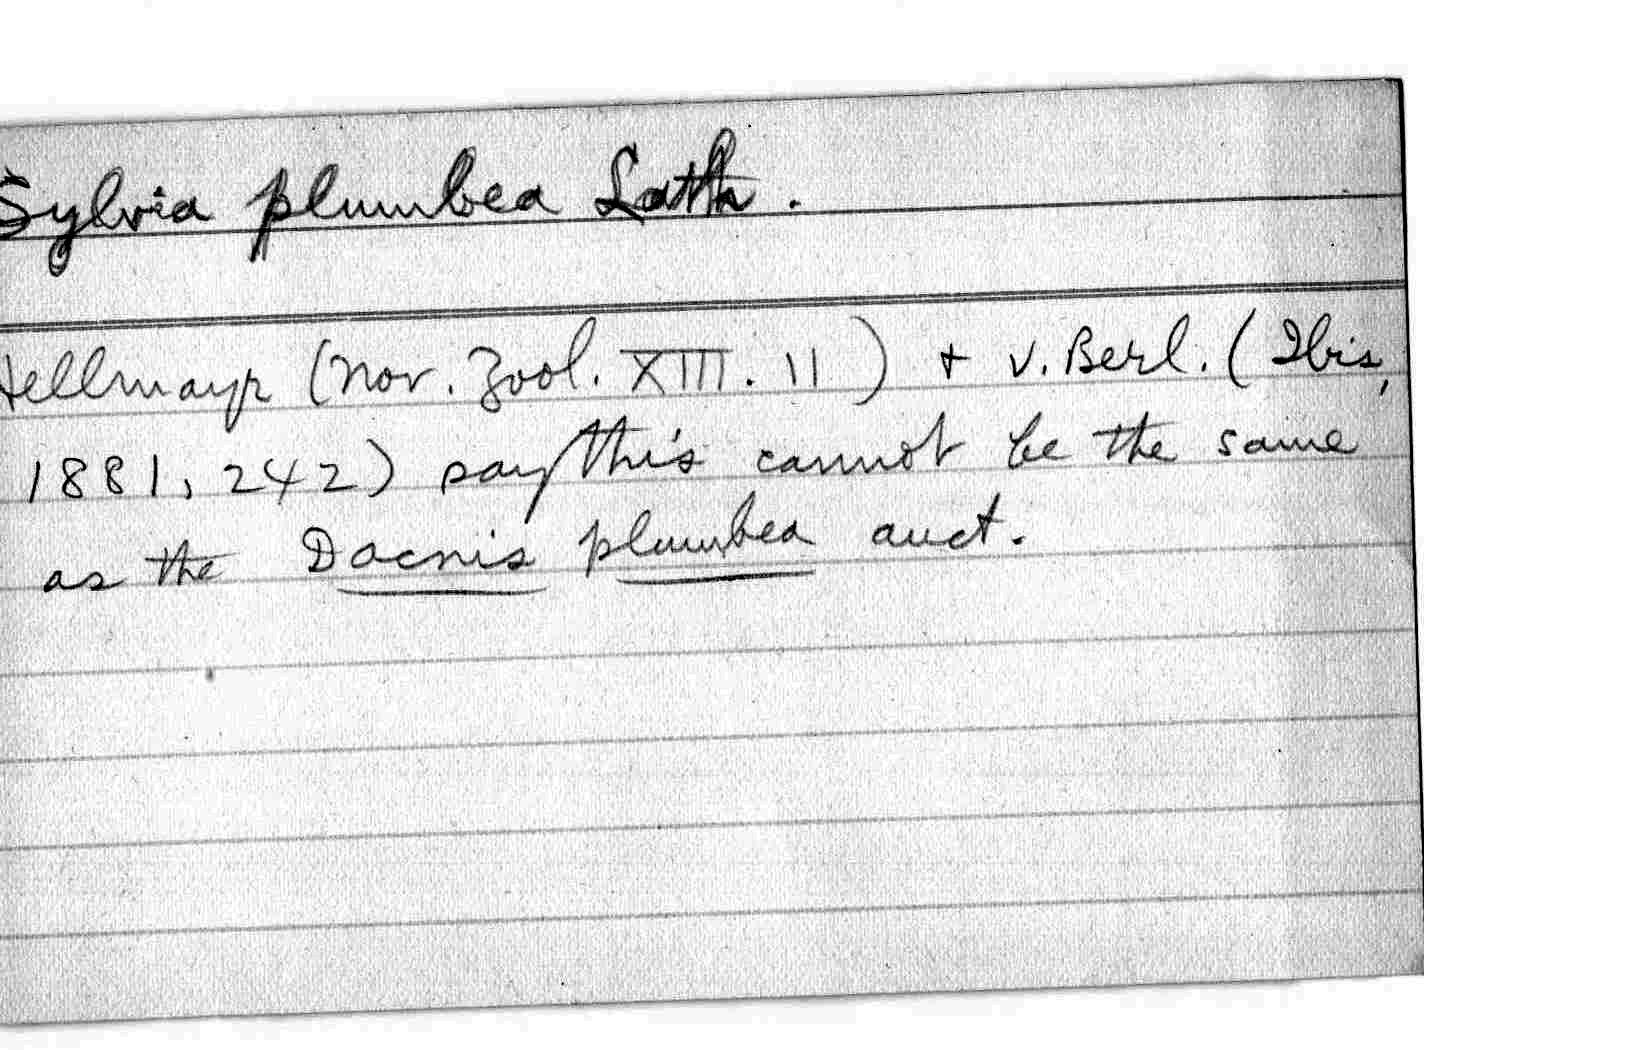 Sylvia plumbea Lath.
Hellmayr (Nov. Zool. XIII. 11) + v. Berl. (Ibis,
1881, 242) say this cannot be the same
as the Dacnis plumbea auct.